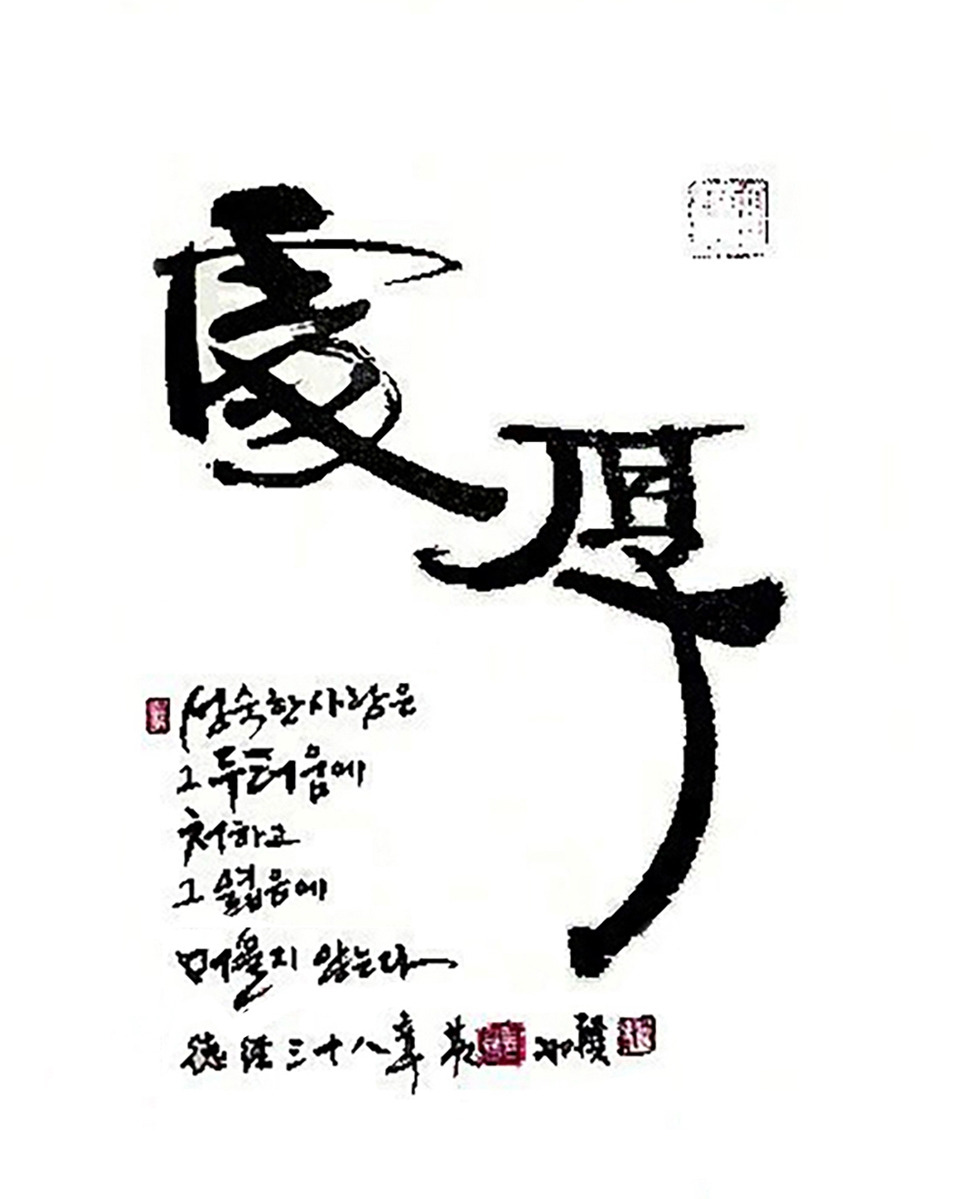 處厚
성숙한 사람은
그 두터움에
처하고
그 엷음에
머물지 않는다
德經三十八章